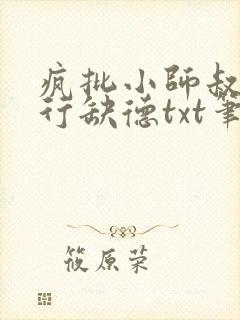 疯批小师叔
行缺德txt笔
筱原荣